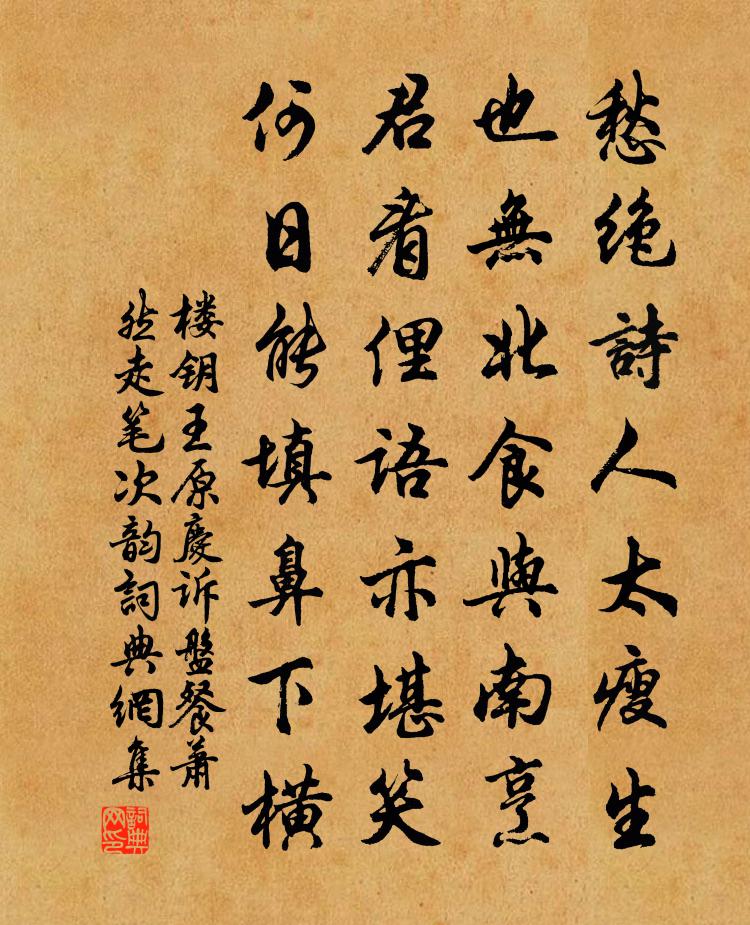 愁绝詩人太瘦生
也無北食與南烹
君看俚語亦堪笑
何日能填鼻下橫
楼钥王原慶诉盤餐萧
然走笔次韵詞典網集
詞典网印